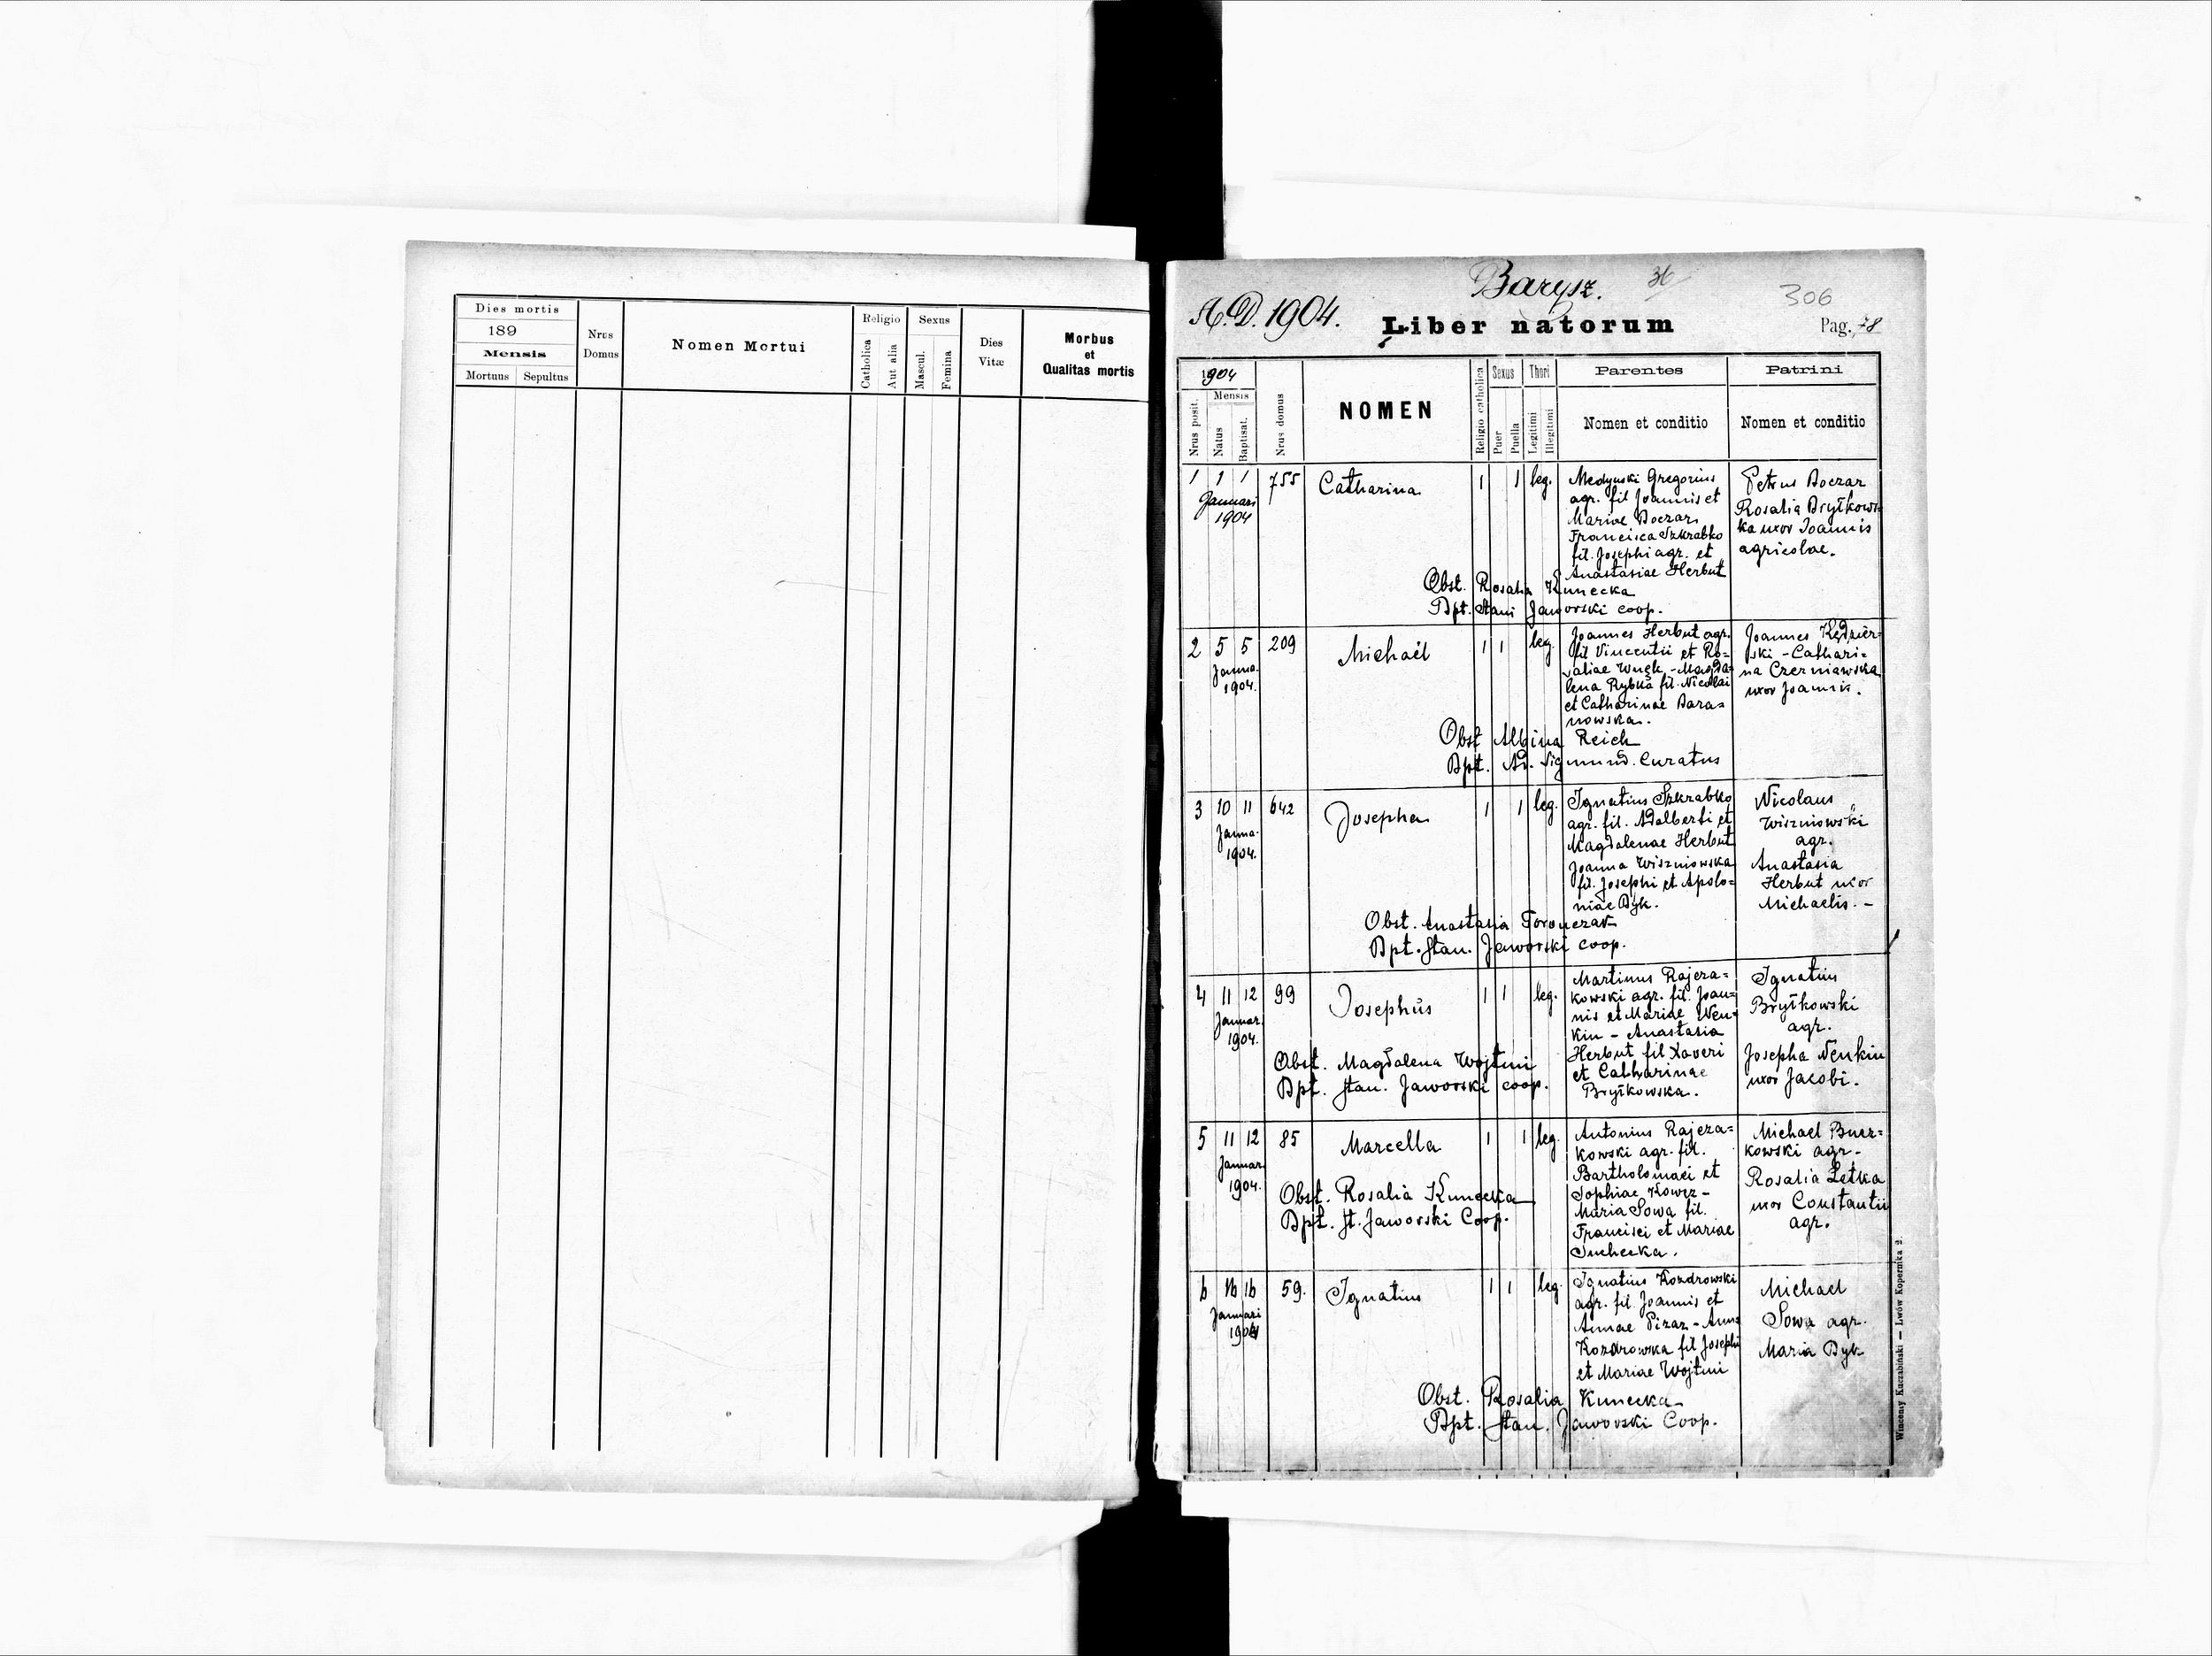 Dies mortis
189
Mensis
Mortuus Sepultus
Nrus Domus
Nomen Mortui
Religio
Catholica
Aut alia
Sexus
Mascul.
Femina
Dies Vitæ
Morbus
et
Qualitas mortis
Barysz. 36
306
A.D. 1904.
Liber natorum
Pag. 78
1904
Mensis
Nrus posit.
Natus
Baptisat.
Nrus domus
NOMEN
Religio catholica
Sexus
Puer
Puella
Thori
Legitimi
Illegitimi
Parentes
Nomen et conditio
Patrini
Nomen et conditio
1 1 1 755 Catharina 1 1 leg.
Januari
1904
Medynski Gregorius
agr. fil Joannis et
Mariae Boczar
Francisca Szkrabko
fil. Josephi agr. et
Anastasiae Herbut
Petrus Boczar
Rosalia Brytkows-
ka uxor Joannis
agricolae.
Obst. Rosalia Kunecka
Bpt. Stani Jaworski coop.
2 5 5 209 Michaël 1 1 leg.
Janua.
1904.
Joannes Herbut agr.
fil Vincentii et Ro=
saliae Wnęk - Magda=
lena Rybka fil. Nicolai
et Catharinae Bara=
nowska.
Joannes Kędzier=
ski - Cathari=
na Czerniawska
uxor Joannis.
Obst Albina Reich
Bpt. Ad. Sigmund. Curatus
3 10 11 642 Josepha 1 1 leg.
Janua.
1904.
Ignatius Szkrabko
agr. fil. Adalberti et
Magdalenae Herbut
Joanna Wiszniowska
fil. Josephi et Apolo=
niae Byk.
Nicolaus
Wiszniowski
agr.
Anastasia
Herbut uxor
Michaelis. -
Obst. Anastasia Toronczak
Bpt. Stan. Jaworski coop.
4 11 12 99 Josephus 1 1 leg.
Januar.
1904.
Martinus Rajcza=
kowski agr. fil. Joan=
nis et Mariae Nen=
kin - Anastasia
Herbut fil Xaveri
et Catharinae
Brytkowska.
Ignatius
Brytkowski
agr.
Josepha Nenkin
uxor Jacobi.
Obst. Magdalena Wojtuń
Bpt. Stan. Jaworski coop.
5 11 12 85 Marcella 1 1 leg.
Januar.
1904.
Antonius Rajcza=
kowski agr. fil.
Bartholomaei et
Sophiae
Maria Sowa fil.
Francisci et Mariae
Suchecka.
Michael
kowski agr.
Rosalia Letka
uxor Constantii
agr.
Obst. Rosalia Kunecka
Bpt. St. Jaworski Coop.
6 16 16 59. Ignatius 1 1 leg.
Januari
1904
Ignatius Kozdrowski
agr. fil. Joannis et
Annae - Anna
Kozdrowska fil Josephi
et Mariae Wojtuń
Michael
Sowa agr.
Maria Byk
Obst. Rosalia Kunecka
Bpt. Stan. Jaworski Coop.
Wincenty Kuczabiński — Lwów Kopernika 2.